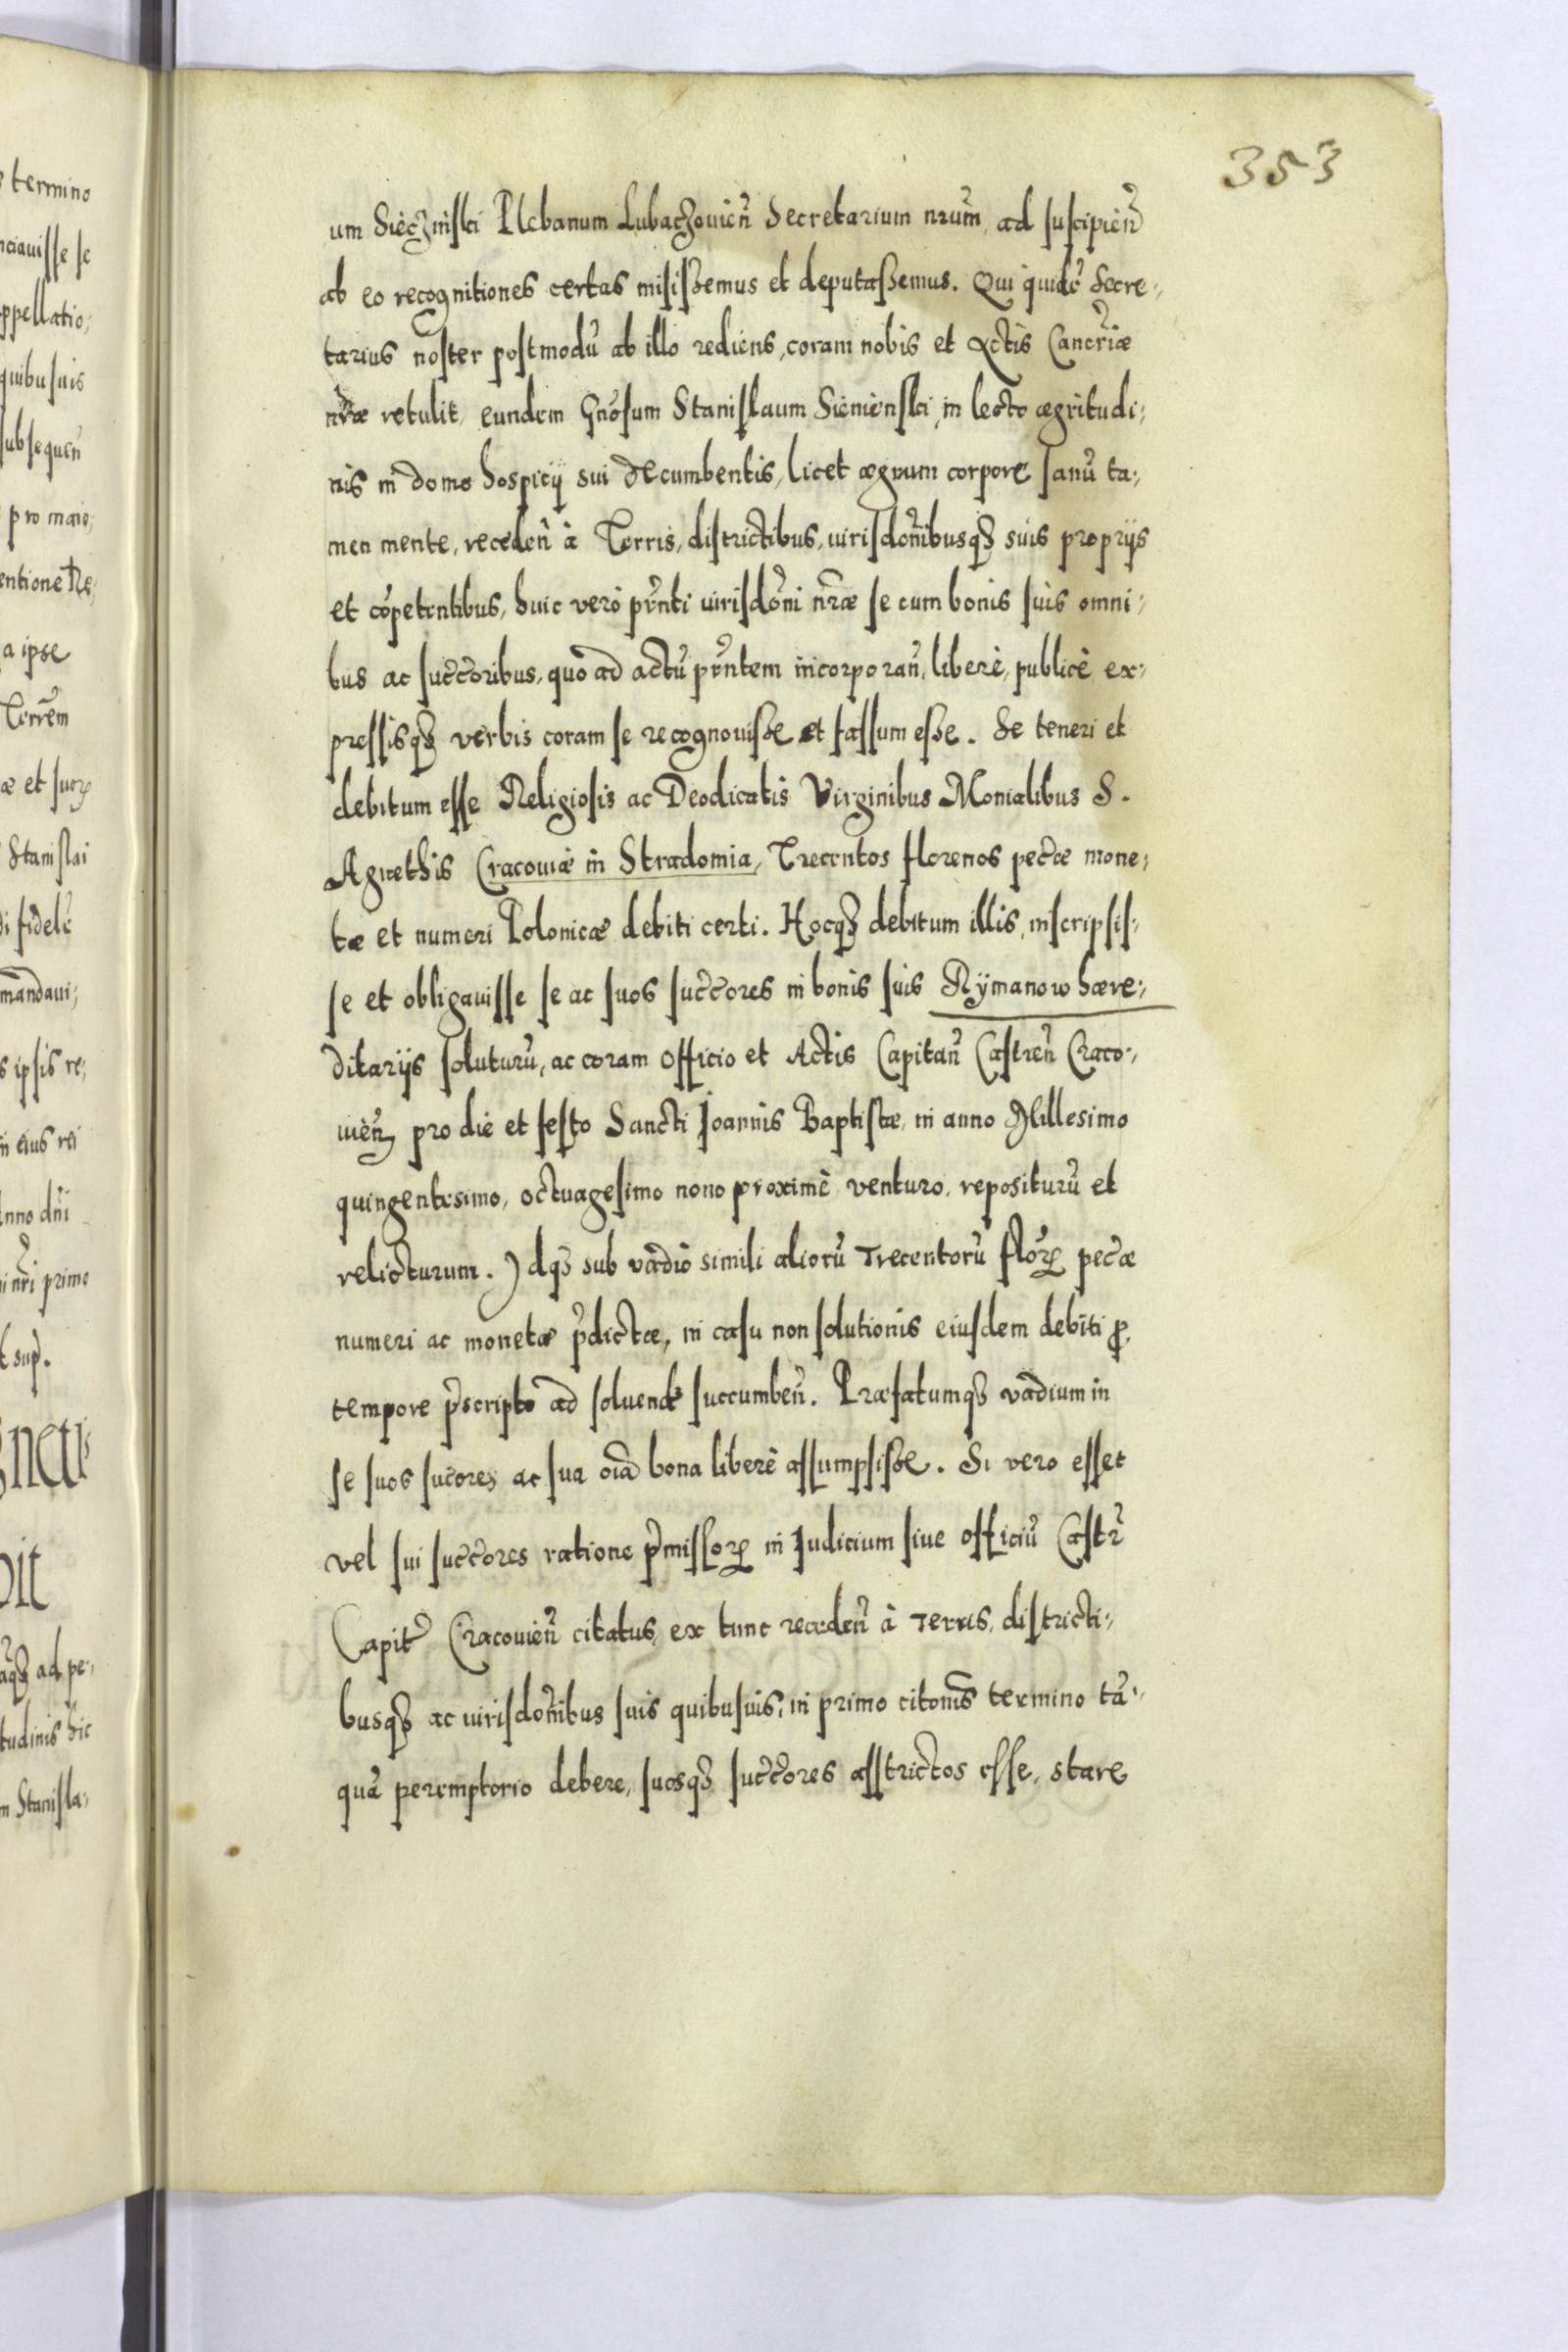 353
um Siecżinski Plebanum Lubaczovieñ Secretarium nrũm, ad suscipieñ
ab eo recognitiones certas misissemus et deputassemus. Qui quidẽ Secre:
tarius noster postmodũ ab illo rediens, coram nobis et Actis Cancr̃iæ
nr̃æ retulit, eundem Gnõsum Stanislaum Sienienski, in lecto ægritudi:
nis in domo hospicij sui decumbentis, licet ægrum corpore sanũ ta:
men mente, recedeñ à Terris, districtibus, iurisdoñibusq₃ suis proprijs
et cõpetentibus, huic verò pr̃nti iurisdoñi nr̃æ se cum bonis suis omni:
bus ac succ̃oribus, quo ad actũ pr̃ntem incorporañ, liberè, publicè ex:
pressisq₃ verbis coram se recognovisse et fassum esse. Se teneri et
debitum esse Religiosis ac Deodicatis Virginibus Monialibus S.
Agnethis Cracoviæ in Stradomia, Trecentos florenos pecc̃æ mone:
tæ et numeri Polonicæ debiti certi. Hocq₃ debitum illis, inscripsis:
se et obligavisse se ac suos succ̃ores in bonis suis Rÿmanow hære:
ditarijs soluturũ, ac coram Officio et Actis Capitañ Castreñ Craco:
vieñ pro die et festo Sancti Joannis Baptistæ, in anno Millesimo
quingentesimo, octuagesimo nono proximè venturo, repositurũ et
relicturum. Idq₃ sub vadio simili aliorũ Trecentorũ flor̃ pecc̃æ
numeri ac monetæ p̃dictæ, in casu non solutionis eiusdem debiti ꝓ
tempore p̃scripto ad solvend̃ succumbeñ. Præfatumq₃ vadium in
se suos sucores ac sua oĩa bona liberè assumpsisse. Si vero esset
vel sui succ̃ores ratione p̃missor̃ in Judicium sive officiũ Castr̃
Capit̃ Cracovieñ citatus, ex tunc recedeñ à Terris, districti:
busq₃ ac iurisdoñibus suis quibusvis, in primo citonis̃ termino tã:
quã peremptorio debere, suosq₃ succ̃ores asstrictos esse, stare